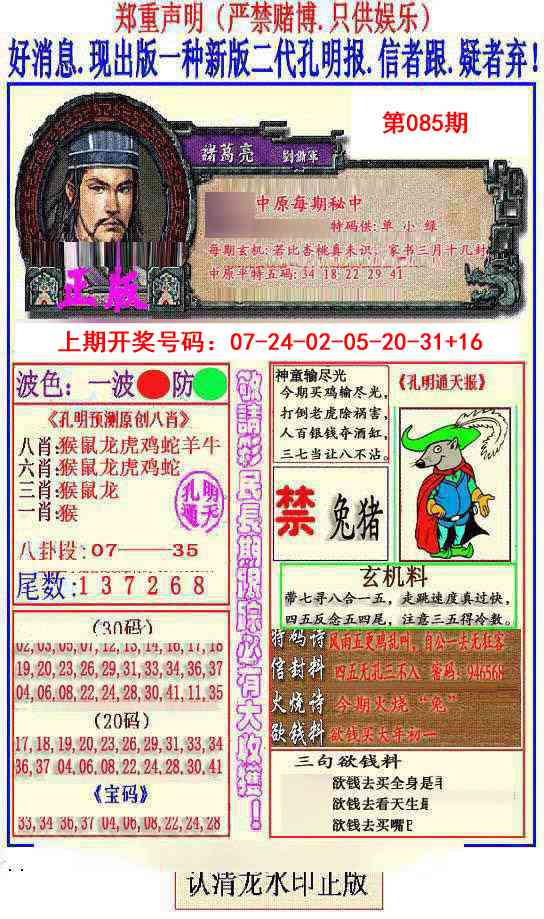 郑重声明（严禁赌博.只供娱乐）
好消息.现出版一种新版二代孔明报.信者跟.疑者弃！
第085期
諸葛亮 劉備軍
中原每期秘中
特码供:单 小 绿
每期玄机:若比杏桃真未识：家书三月十几封
中原平特五码:34 18 22 29 41
正版
上期开奖号码：07-24-02-05-20-31+16
波色：一波 防
《孔明预测原创八肖》
八肖:猴鼠龙虎鸡蛇羊牛
六肖:猴鼠龙虎鸡蛇
三肖:猴鼠龙
一肖:猴
孔明
通天
八卦段:07——35
尾数:137268
(30码)
02,03,05,07,12,13,14,16,17,18
19,20,23,26,29,31,33,34,36,37
04,06,08,22,24,28,30,41,11,35
(20码)
17,18,19,20,23,26,29,31,33,34
36,37 04,06,08,22,24,28,30,41
《宝码》
33,34 36,37 04,06,08,22,24,28
敬請彩民長期跟踪必有大收獲！
神童输尽光
今期买鸡输尽光，
打倒老虎除祸害，
人百银钱夺酒缸，
三七当让八不沾。
《孔明通天报》
禁 兔猪
玄机料
带七寻八合一五，走跳速度真过快，
四五反念五四尾，注意三五得冷数。
特码诗 风雨五更鸡乱叫，自公一去无狂客
信封料 四五天孔三不入 密码：946568
火烧诗 今期火烧“兔”
欲钱料 欲钱买大年初一
三句欲钱料
欲钱去买全身是
欲钱去看天生
欲钱去买嘴
认清龙水印正版